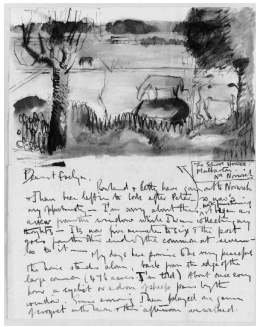 The School House,
Mulbarton,
Nr Norwich
Dearest Evelyn.
Rowland & Letty have gone out to Norwich
& I have been left in to look after Peter so now's
my opportunity - I'm sorry about this
a view from the window while I was collecting my
thoughts - It's now five minutes to six & the post
goes from this end of the common at seven
so to it
My days here promise to be very peaceful
the house stands alone, back from the edge of the
large common (476 acres I'm told) About once every
hour a cyclist or a drove of sheep pass by the
window. Since arriving I have played one game
of croquet with